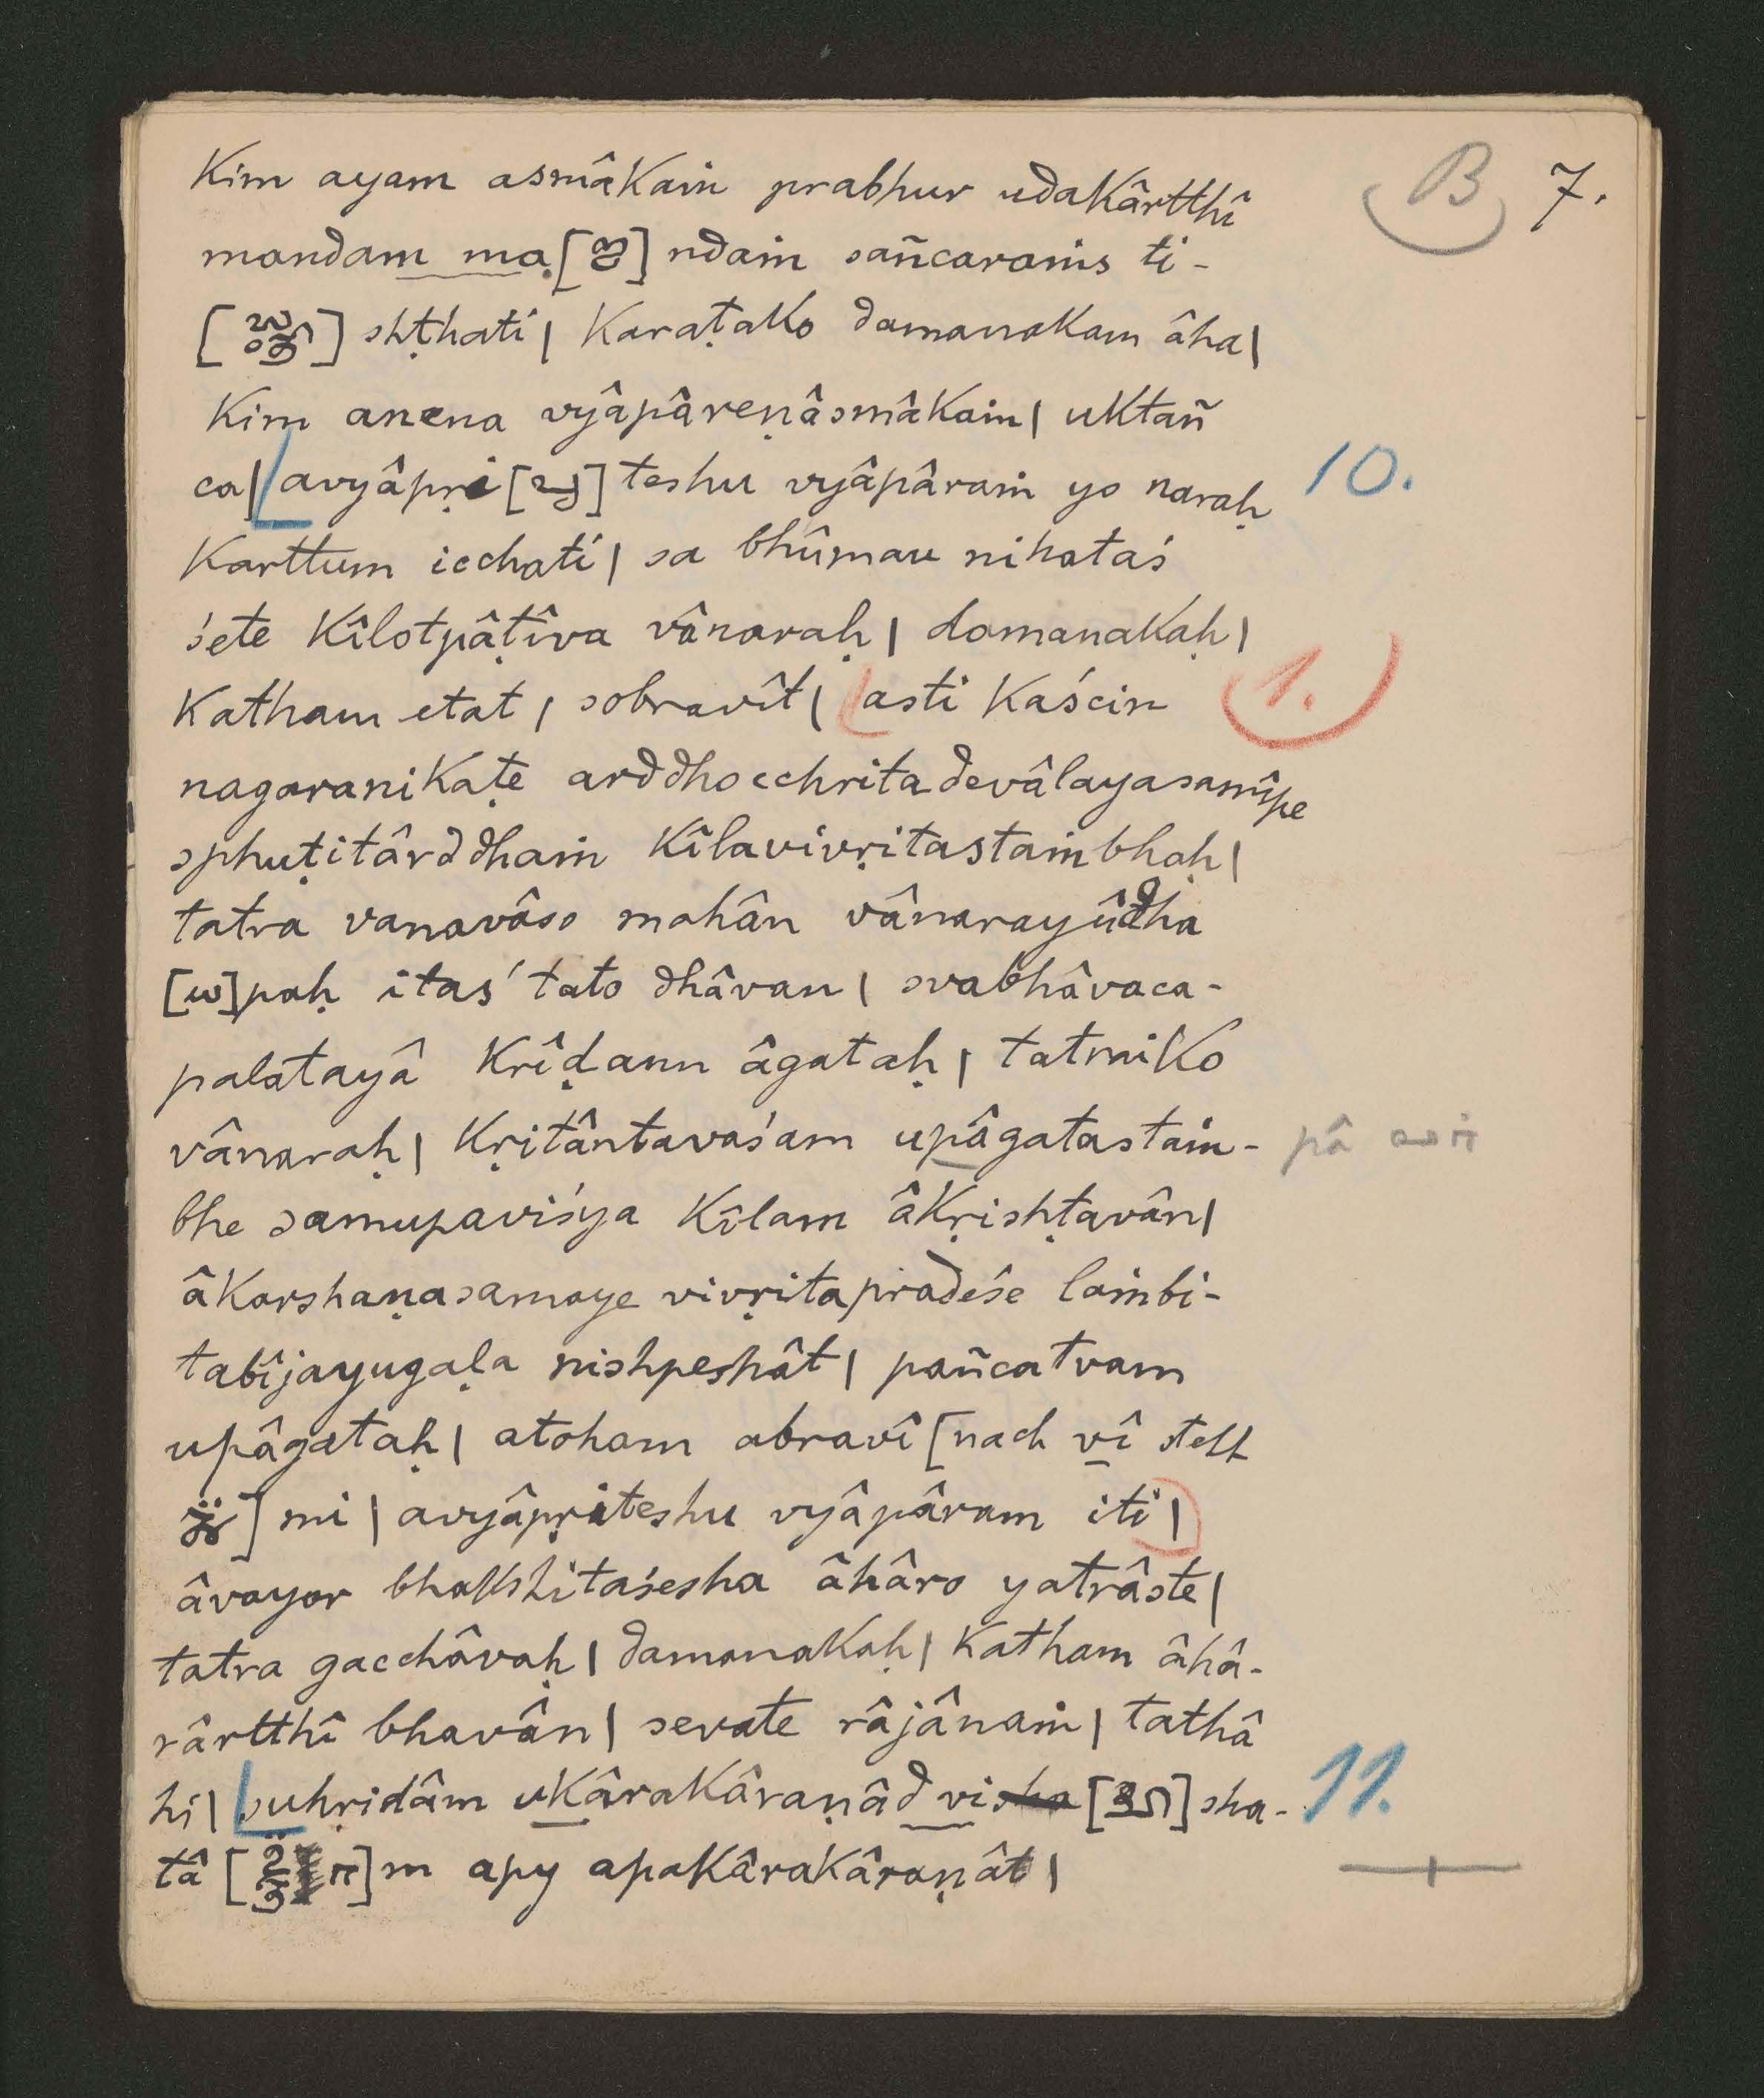 B 7.
Kim ayam asmâkaṁ prabhur udakârtthî
mandam ma[] ndaṁ sañcaraṁs ti-
[] shṭhati| Karaṭako damanakam âha|
Kim anena vyâpâreṇâsmâkaṁ| uktañ
ca| avyâpṛi [] teshu vyâpâraṁ yo naraḥ 10.
Karttum icchati| sa bhûmau nihataś
śete Kîlotpâṭîva vânaraḥ| damanakaḥ|
Katham etat| sobravît| asti Kaścin 1.
nagaranikaṭe arddhocchritadevâlayasamîpe
sphuṭitârddhaṁ Kîlavivṛitastaṁbhaḥ|
tatra vanavâso mahân vânarayûdha
[]paḥ itaś tato dhâvan| svabhâvaca-
palatayâ Krîḍann âgataḥ| tatraiko
vânaraḥ| Kṛitântavaśam upâgatastaṁ- pâ
bhe samupaviśya Kîlam âkṛishṭavân|
âkarshaṇasamaye vivṛitapradeśe laṁbi-
tabîjayugaḷa nishpeshât| pañcatvam
upâgataḥ| atoham abravî [nach vî steht
] mi | avyâpṛiteshu vyâpâram iti|
âvayor bhakshitaśesha âhâro yatrâste|
tatra gacchâvaḥ| damanakaḥ| Katham âhâ-
rârtthî bhavân| sevate râjânaṁ| tathâ
hi| suhṛidâm ukârakâraṇâd visha [] sha- 11.
tâ []m apy apakârakâraṇât|